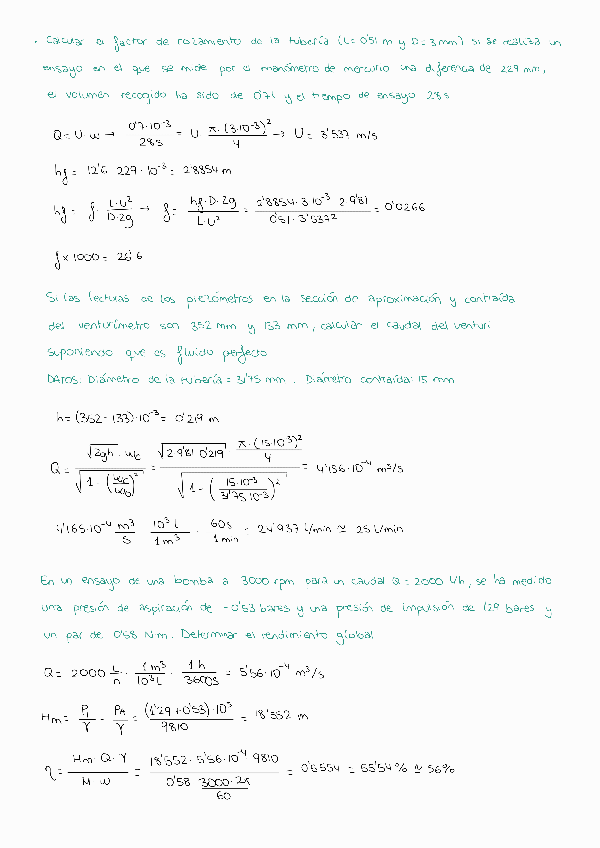 . Calcular el factor de rozamiento de la tubería (L=0'51 m y D=3mm) si se realiza un
ensayo en el que se mide por el manómetro de mercurio una diferencia de 229 mm,
el volumen recogido ha sido de 0'7 L y el tiempo de ensayo 28 s
Q = U · w → 0'7·10⁻³ / 28 s = U · π·(3·10⁻³)² / 4 → U = 3'537 m/s
hf = 12'6 · 229 · 10⁻³ = 2'8854 m
hf = f · L·U² / D·2g → f = hf·D·2g / L·U² = 2'8854·3·10⁻³·2·9'81 / 0'51·3'537² = 0'0266
f × 1000 = 26'6
Si las lecturas de los piezómetros en la sección de aproximación y contraída
del venturímetro son 352 mm y 133 mm, calcular el caudal del venturi
suponiendo que es fluido perfecto
DATOS: Diámetro de la tubería = 31'75 mm . Diámetro contraída: 15 mm
h = (352 - 133)·10⁻³ = 0'219 m
Q = √2gh · wc / √1 - (wc/w0)² = √2·9'81·0'219 · π·(15·10⁻³)²/4 / √1 - (15·10⁻³ / 31'75·10⁻³)² = 4'156·10⁻⁴ m³/s
4'165·10⁻⁴ m³/s · 10³ L / 1 m³ · 60 s / 1 min = 24'937 L/min ≃ 25 L/min
En un ensayo de una bomba a 3000 rpm para un caudal Q = 2000 L/h, se ha medido
una presión de aspiración de -0'53 bares y una presión de impulsión de 1'29 bares y
un par de 0'58 N·m. Determinar el rendimiento global
Q = 2000 L/h · 1 m³ / 10³ L · 1 h / 3600 s = 5'56·10⁻⁴ m³/s
Hm = PI/γ - PA/γ = (1'29 + 0'53)·10⁵ / 9810 = 18'552 m
η = Hm·Q·γ / M·w = 18'552 · 5'56·10⁻⁴ · 9810 / 0'58 · 3000·2π/60 = 0'5554 = 55'54 % ≃ 56%